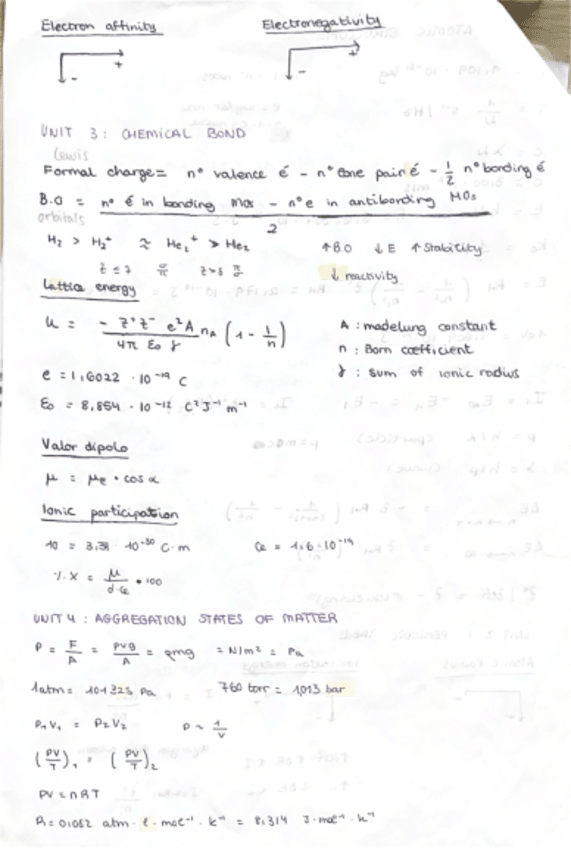 Electron affinity
Electronegativity
+
-
+
-
UNIT 3: CHEMICAL BOND
Lewis
Formal charge = nº valence é - nº lone pair é - 1/2 nº bonding é
B.O = nº é in bonding MOs - nº e in antibonding MOs / 2
orbitals
H₂ > H₂⁺ ≈ He₂⁺ > He₂
↑B.O ↓E ↑Stability
↓ reactivity
Lattice energy
U = - Z⁺Z⁻ e² A / 4π ε₀ γ nA (1 - 1/n)
A : madelung constant
n : Born coefficient
γ : sum of ionic radius
e = 1,6022 · 10⁻¹⁹ C
ε₀ = 8,854 · 10⁻¹² C² J⁻¹ m⁻¹
Valor dipolo
μ = μe · cos α
Ionic participation
1D = 3,34 · 10⁻³⁰ C·m
Ce = 1,6·10⁻¹⁹
%X = μ / d·Ce · 100
UNIT 4 : AGGREGATION STATES OF MATTER
P = F/A = = N/m² = Pa
1atm = 101325 Pa
760 torr = 1,013 bar
P₁V₁ = P₂V₂
P ~ 1/V
(PV/T)₁ = (PV/T)₂
PV = nRT
R = 0,082 atm · l · mol⁻¹ · k⁻¹ = 8,314 J·mol⁻¹·k⁻¹